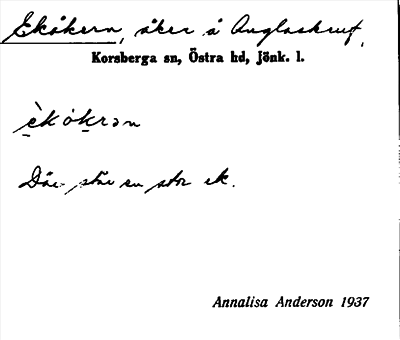 Ekåkern, åker å Anglaskruf,
Korsberga sn, Östra hd, Jönk. l.
èkåkrən
Där står en stor ek.
Annalisa Anderson 1937